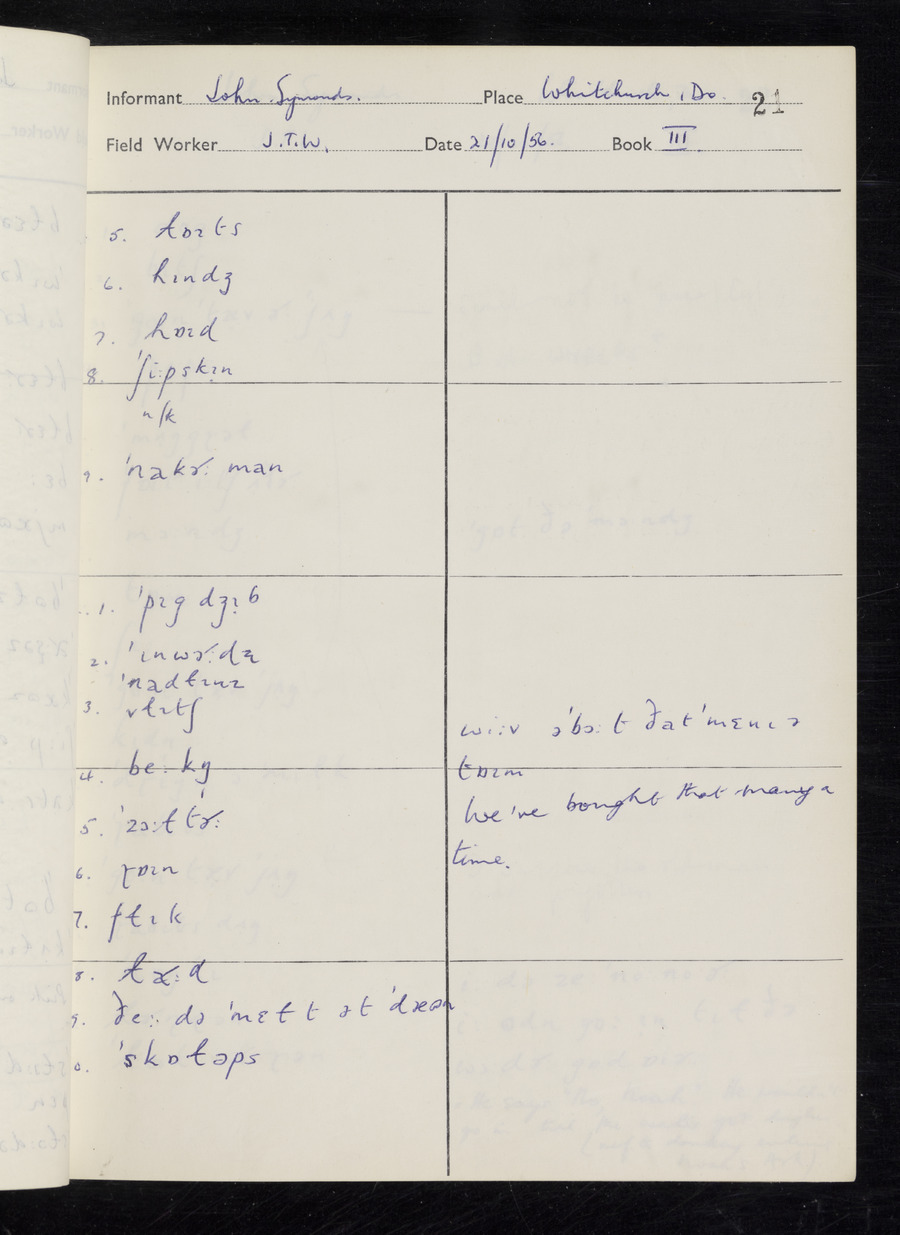 Informant John Symonds. Place Whitchurch, Do. 21
Field Worker J.T.W. Date 21/10/56. Book III
5. ɫɒɪts
6. hɪndʒ
7. hɒɪd
8. ˈʃiːpskɪn
n/k
9. ˈnakɚː man
1. ˈpɪg dʒɪb
2. ˈɪnwɚːdz
ˈnadɫɪnz
3. vɫɪtʃ
4. beːkŋ
5. ˈzɔːɫtɚː
6. ɽɒɪn
7. fɫɪk
8. ɫæːd
9. ðeː də ˈmɛɫt ət ˈdæən
0. ˈskɒɫəps
wiːv əˈbɔːt ðat ˈmɛnɪ ə
tɒɪm
We've bought that many a
time.